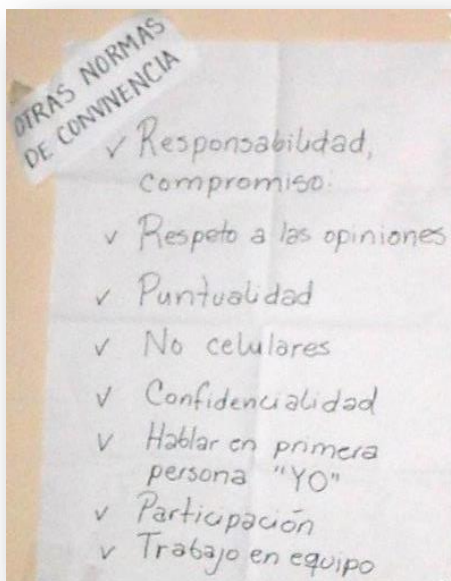 OTRAS NORMAS
DE CONVIVENCIA
✓ Responsabilidad,
compromiso.
✓ Respeto a las opiniones
✓ Puntualidad
✓ No celulares
✓ Confidencialidad
✓ Hablar en primera
persona "YO"
✓ Participación
✓ Trabajo en equipo